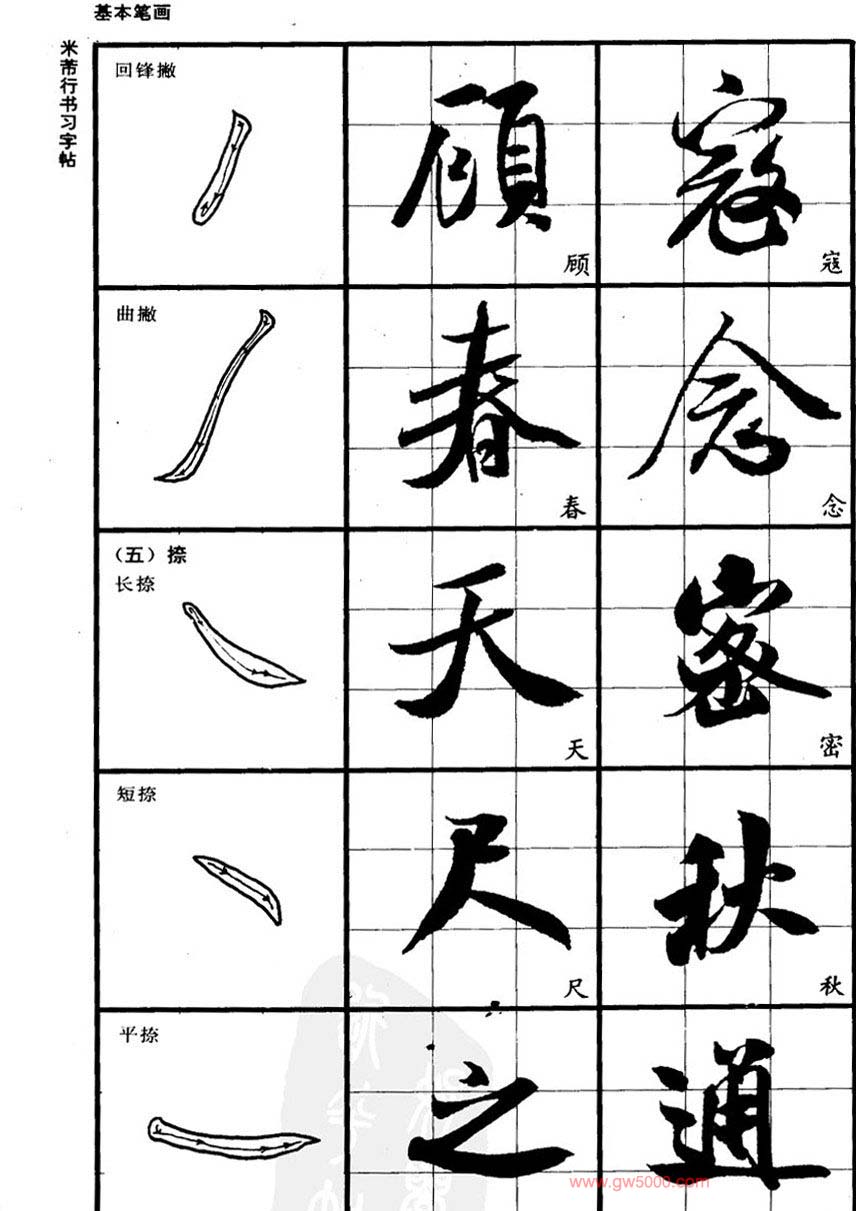 基本笔画
米芾行书习字帖
回锋撇
顾 寇
顾 寇
曲撇
春 念
春 念
（五）捺
长捺
天 密
天 密
短捺
尺 秋
尺 秋
平捺
之 通
www.gw5000.com